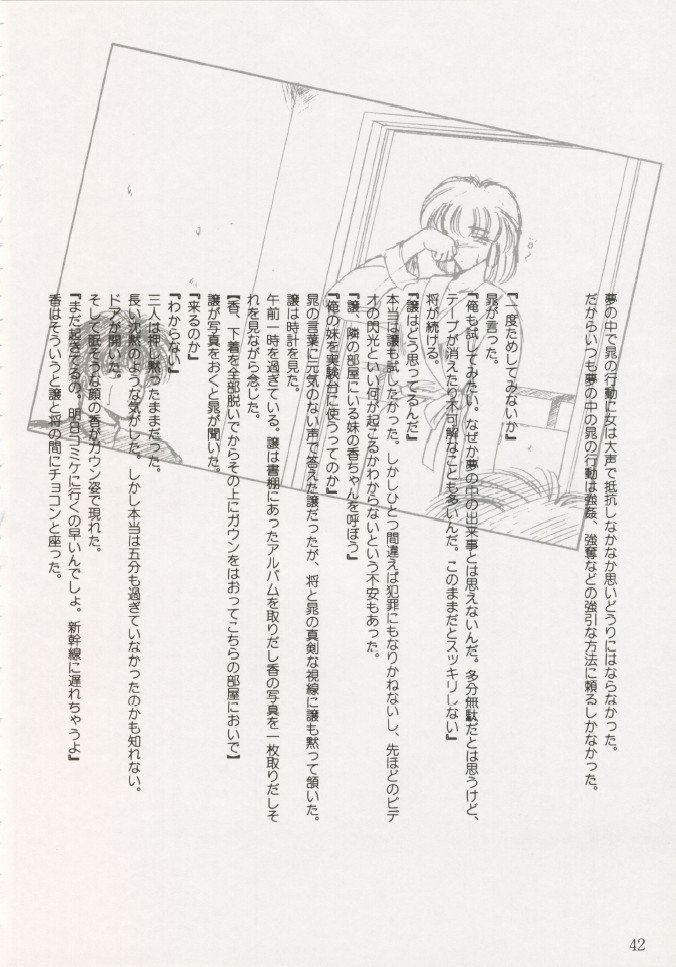 夢の中で晃の行動に女は大声で抵抗しなかなか思いどうりにはならなかった。
だからいつも夢の中の晃の行動は強姦、強奪などの強引な方法に頼るしかなかった。
『一度ためしてみないか』
晃が言った。
『俺も試してみたい。なぜか夢の中の出来事とは思えないんだ。多分無駄だとは思うけど、
テープが消えたり不可解なことも多いんだ。このままだとスッキリしない』
将が続ける。
『譲はどう思ってるんだ』
本当は譲も試したかった。しかしひとつ間違えば犯罪にもなりかねないし、先ほどのビデ
オの閃光といい何が起こるかわからないという不安もあった。
『譲、隣の部屋にいる妹の香ちゃんを呼ぼう』
『俺の妹を実験台に使うってのか』
晃の言葉に元気のない声で答えた譲だったが、将と晃の真剣な視線に譲も黙って頷いた。
譲は時計を見た。
午前一時を過ぎている。譲は書棚にあったアルバムを取りだし香の写真を一枚取りだしそ
れを見ながら念じた。
【香、下着を全部脱いでからその上にガウンをはおってこちらの部屋においで】
譲が写真をおくと晃が聞いた。
『来るのか』
『わからない』
三人は押し黙ったままだった。
長い沈黙のような気がした。しかし本当は五分も過ぎていなかったのかも知れない。
ドアが開いた。
そして眠そうな顔の香がガウン姿で現れた。
『まだ起きてるの。明日コミケに行くの早いんでしょ。新幹線に遅れちゃうよ』
香はそういうと譲と将の間にチョコンと座った。
42